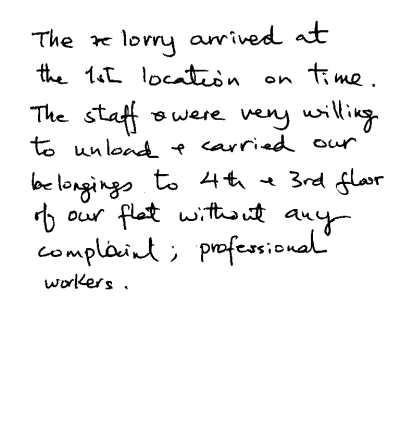 The lorry arrived at
the 1st location on time.
The staff were very willing
to unload & carried our
belongings to 4th & 3rd floor
of our flat without any
complaint; professional
workers.